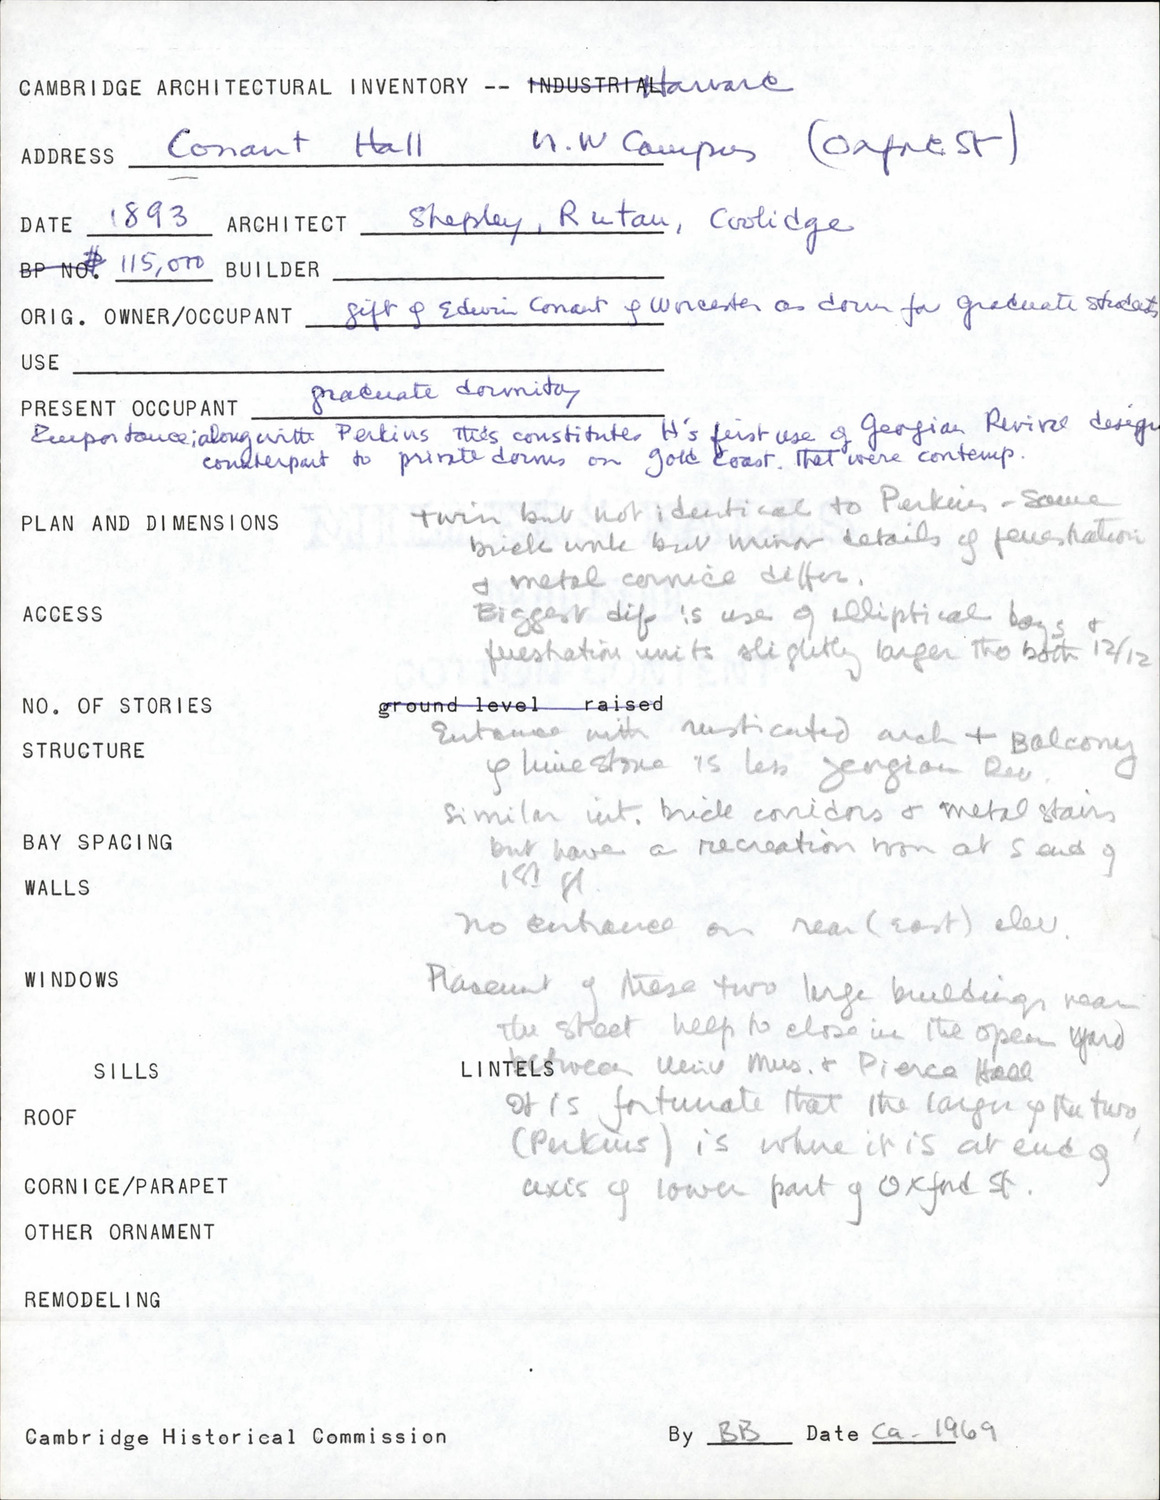 CAMBRIDGE ARCHITECTURAL INVENTORY -- INDUSTRIAL Harvard
ADDRESS Conant Hall N.W Campus (Oxford St)
DATE 1893 ARCHITECT Shepley, Rutan, Coolidge
BP NO. $ 115,000 BUILDER
ORIG. OWNER/OCCUPANT gift of Edwin Conant of Worcester as dorm for graduate students
USE
PRESENT OCCUPANT graduate dormitory
Importance; along with Perkins this constitutes H's first use of Georgian Revival design
counterpart to private dorms on gold coast. that were contemp.
PLAN AND DIMENSIONS twin but not identical to Perkins - same
brick work but minor details of fenestration
& metal cornice differ.
ACCESS Biggest dif is use of elliptical bays &
fenestration units slightly larger tho both 12/12
NO. OF STORIES ground level raised
Entrance with rusticated arch + Balcony
STRUCTURE of limestone is less georgian Rev.
Similar int. brick corridors & metal stairs
BAY SPACING but have a recreation room at S end of
WALLS 1st fl.
No entrance on rear (east) elev.
WINDOWS Placement of these two large buildings near
the street help to close in the open yard
SILLS LINTELS between Univ Mus. & Pierce Hall
ROOF It is fortunate that the larger of the two,
(Perkins) is where it is at end of
CORNICE/PARAPET axis of lower part of Oxford St.
OTHER ORNAMENT
REMODELING
Cambridge Historical Commission By BB Date ca. 1969